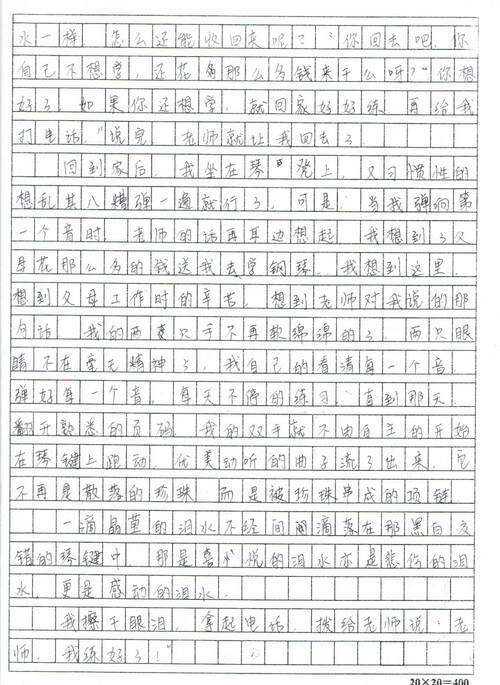 水一样，怎么还能收回来呢？"你回去吧，你
自己不想学，还花多那么多钱来干么呀？"你想
好了，如果你还想学，就回家好好练，再给我
打电话。"说完，老师就让我回去了
回到家后，我坐在琴凳上，又习惯性的
想乱其八糟弹一遍就行了，可是，当我弹响第
一个音时，老师的话再耳边想起，我想到了父
母花那么多的钱送我去学钢琴，我想到这里，
想到父母工作时的辛苦，想到老师对我说的那
句话，我的两支只手不再软绵绵的了，两只眼
睛不在毫无精神了，我自己的看清每一个音，
弹好每一个音，每天不停的练习，直到那天，
翻开熟悉的页码，我的双手就不由自主的开始
在琴键上跑动，优美动听的曲子流了出来，它
不再是散落的珍珠，而是被珍珠串成的项链
一滴晶莹的泪水不经间滴落在那黑白交
错的琴键中，那是喜悦的泪水亦是悲伤的泪
水，更是感动的泪水。
我擦干眼泪，拿起电话，拨给老师说："老
师，我练好了！"
20×20=400